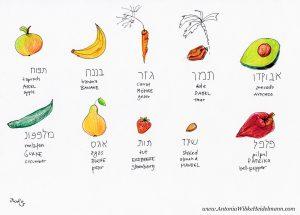 תפוח
tapuach
APFEL
apple
בננה
banana
BANANE
גזר
carrot
MÖHRE
geser
תמר
date
DATTEL
אבוקדו
avocado
AVOCADO
מלפפון
GURKE
cucumber
אגס
agas
BIRNE
תות
tut
ERDBEERE
strawberry
שקד
shaked
almond
MANDEL
פלפל
pilpel
PAPRIKA
bell-pepper
www.AntoniaWilkeHeidelmann.com